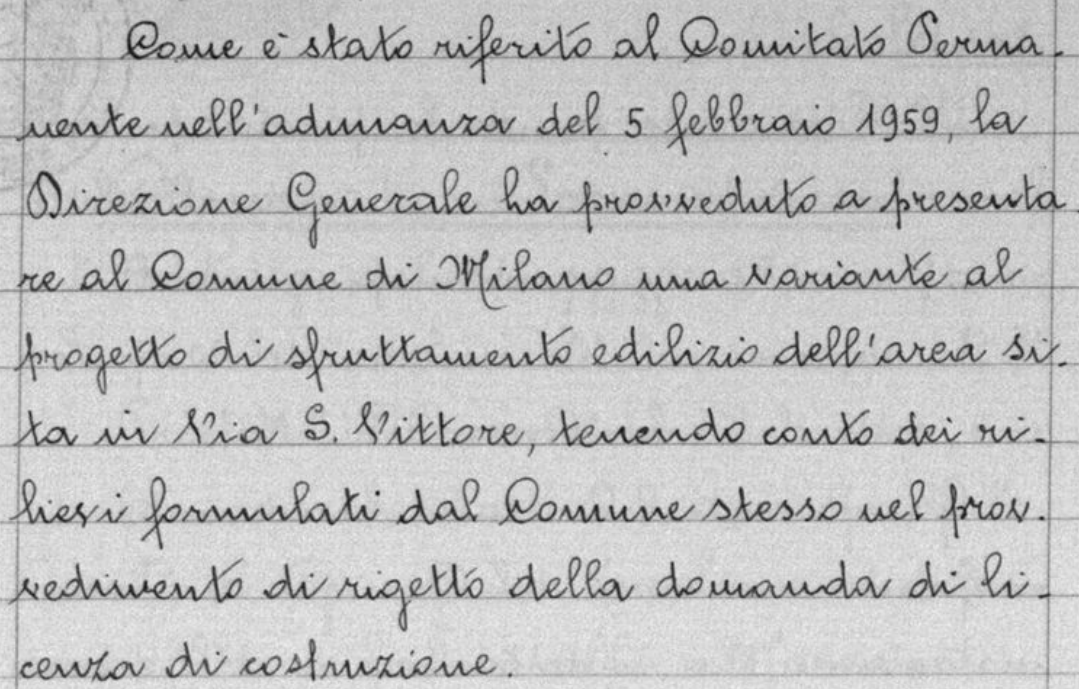 Come è stato riferito al Comitato Perma-
nente nell'adunanza del 5 febbraio 1959, la
Direzione Generale ha provveduto a presenta-
re al Comune di Milano una variante al
progetto di sfruttamento edilizio dell'area si-
ta in Via S. Vittore, tenendo conto dei ri-
lievi formulati dal Comune stesso nel prov-
vedimento di rigetto della domanda di li-
cenza di costruzione.